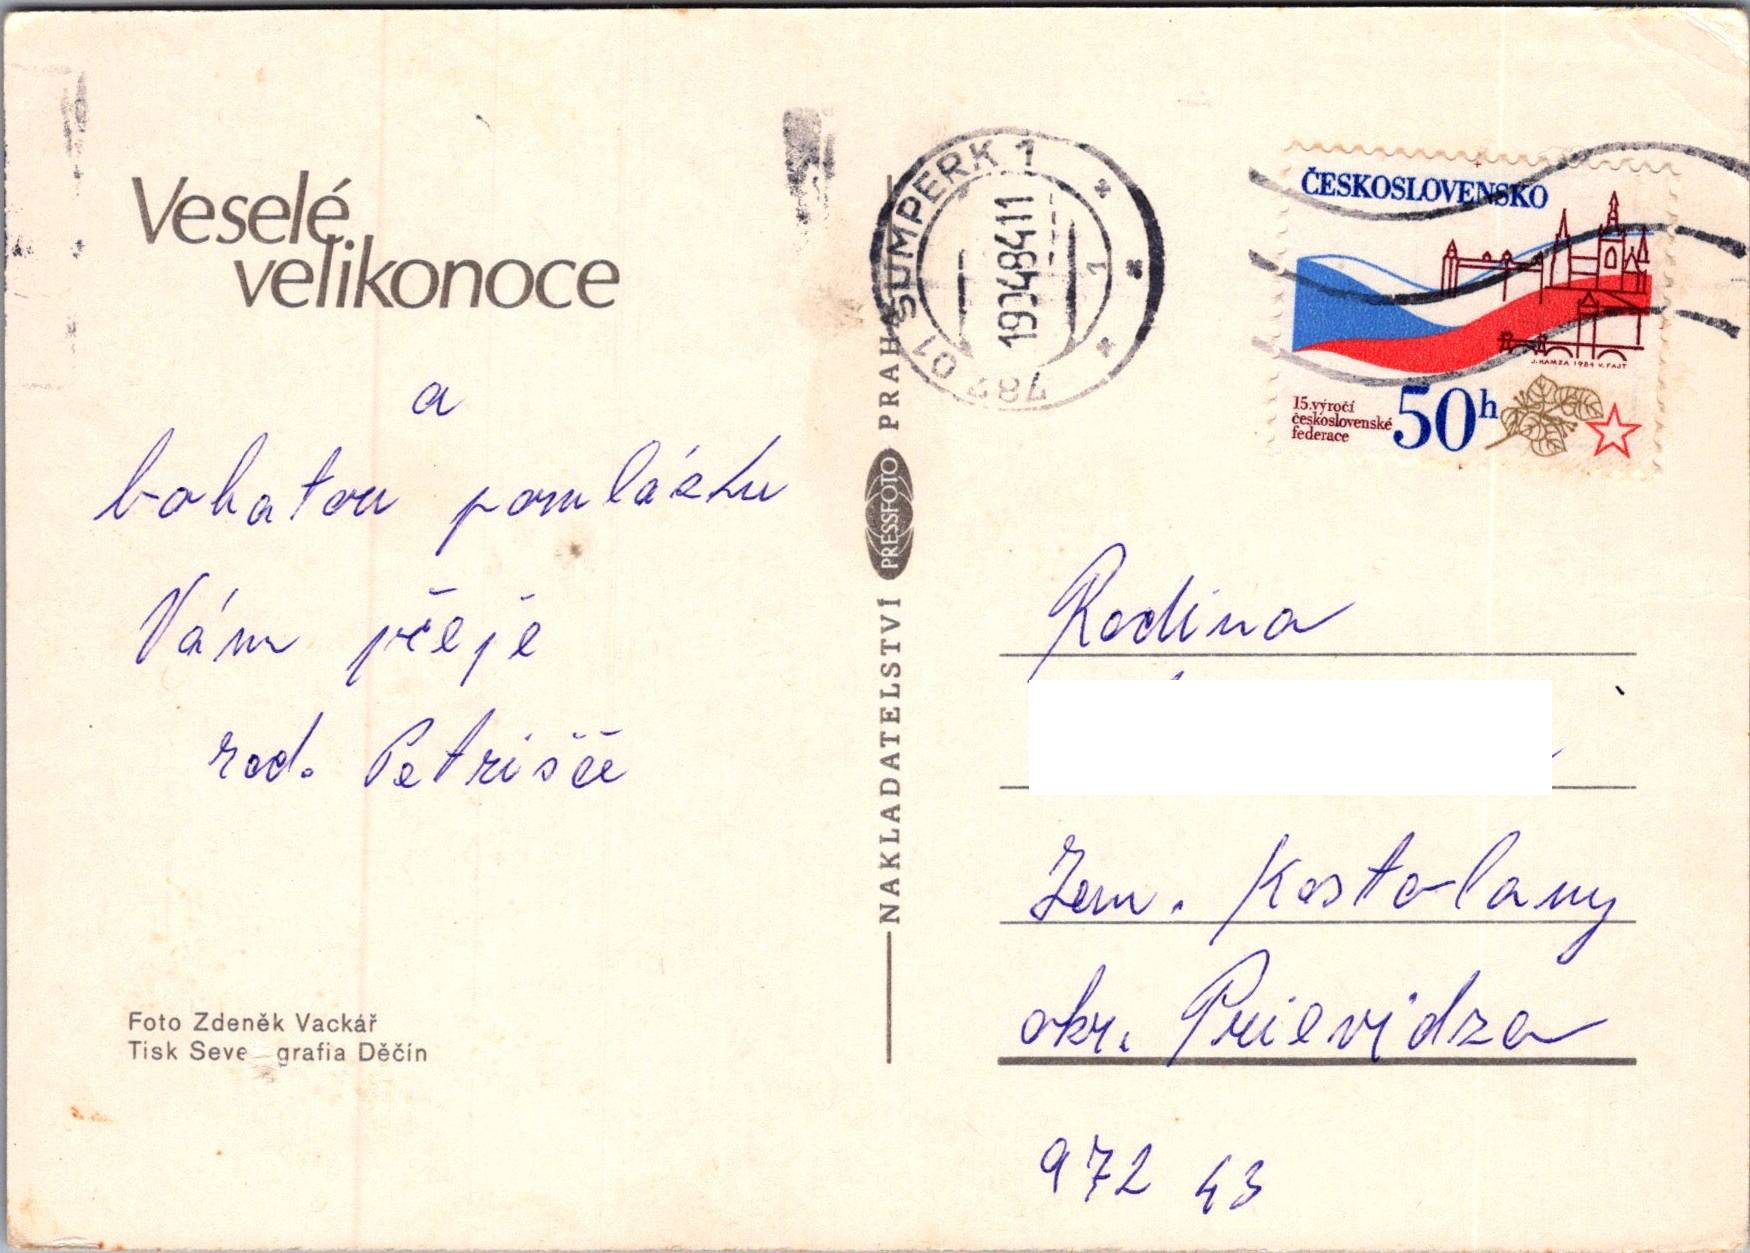 Veselé
velikonoce
a
bohatou pomlázku
Vám přeje
rod. Petrišče
Foto Zdeněk Vackář
Tisk Seve grafia Děčín
NAKLADATELSTVÍ PRESSFOTO PRAHA
787 01 ŠUMPERK 1
19.4.84 11
1
ČESKOSLOVENSKO
J. HAMZA 1984 V. FAJT
15. výročí
československé
federace
50h
Rodina
Zem. Kostolany
okr. Prievidza
972 43